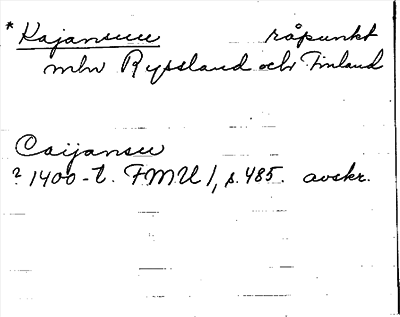 * Kajansuu råpunkt
mln Ryssland och Finland
Caijansu
? 1400-t. FMU 1, s. 485. avskr.